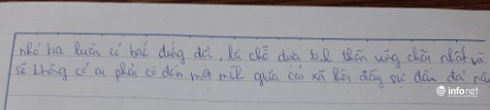 nhỏ kia luôn có bác đứng đợi, là chỗ dựa tinh thần vững chãi nhất và
sẽ không có ai phải cô đơn một mình giữa cái xã hội đầy sự dẫu dá này
infonet